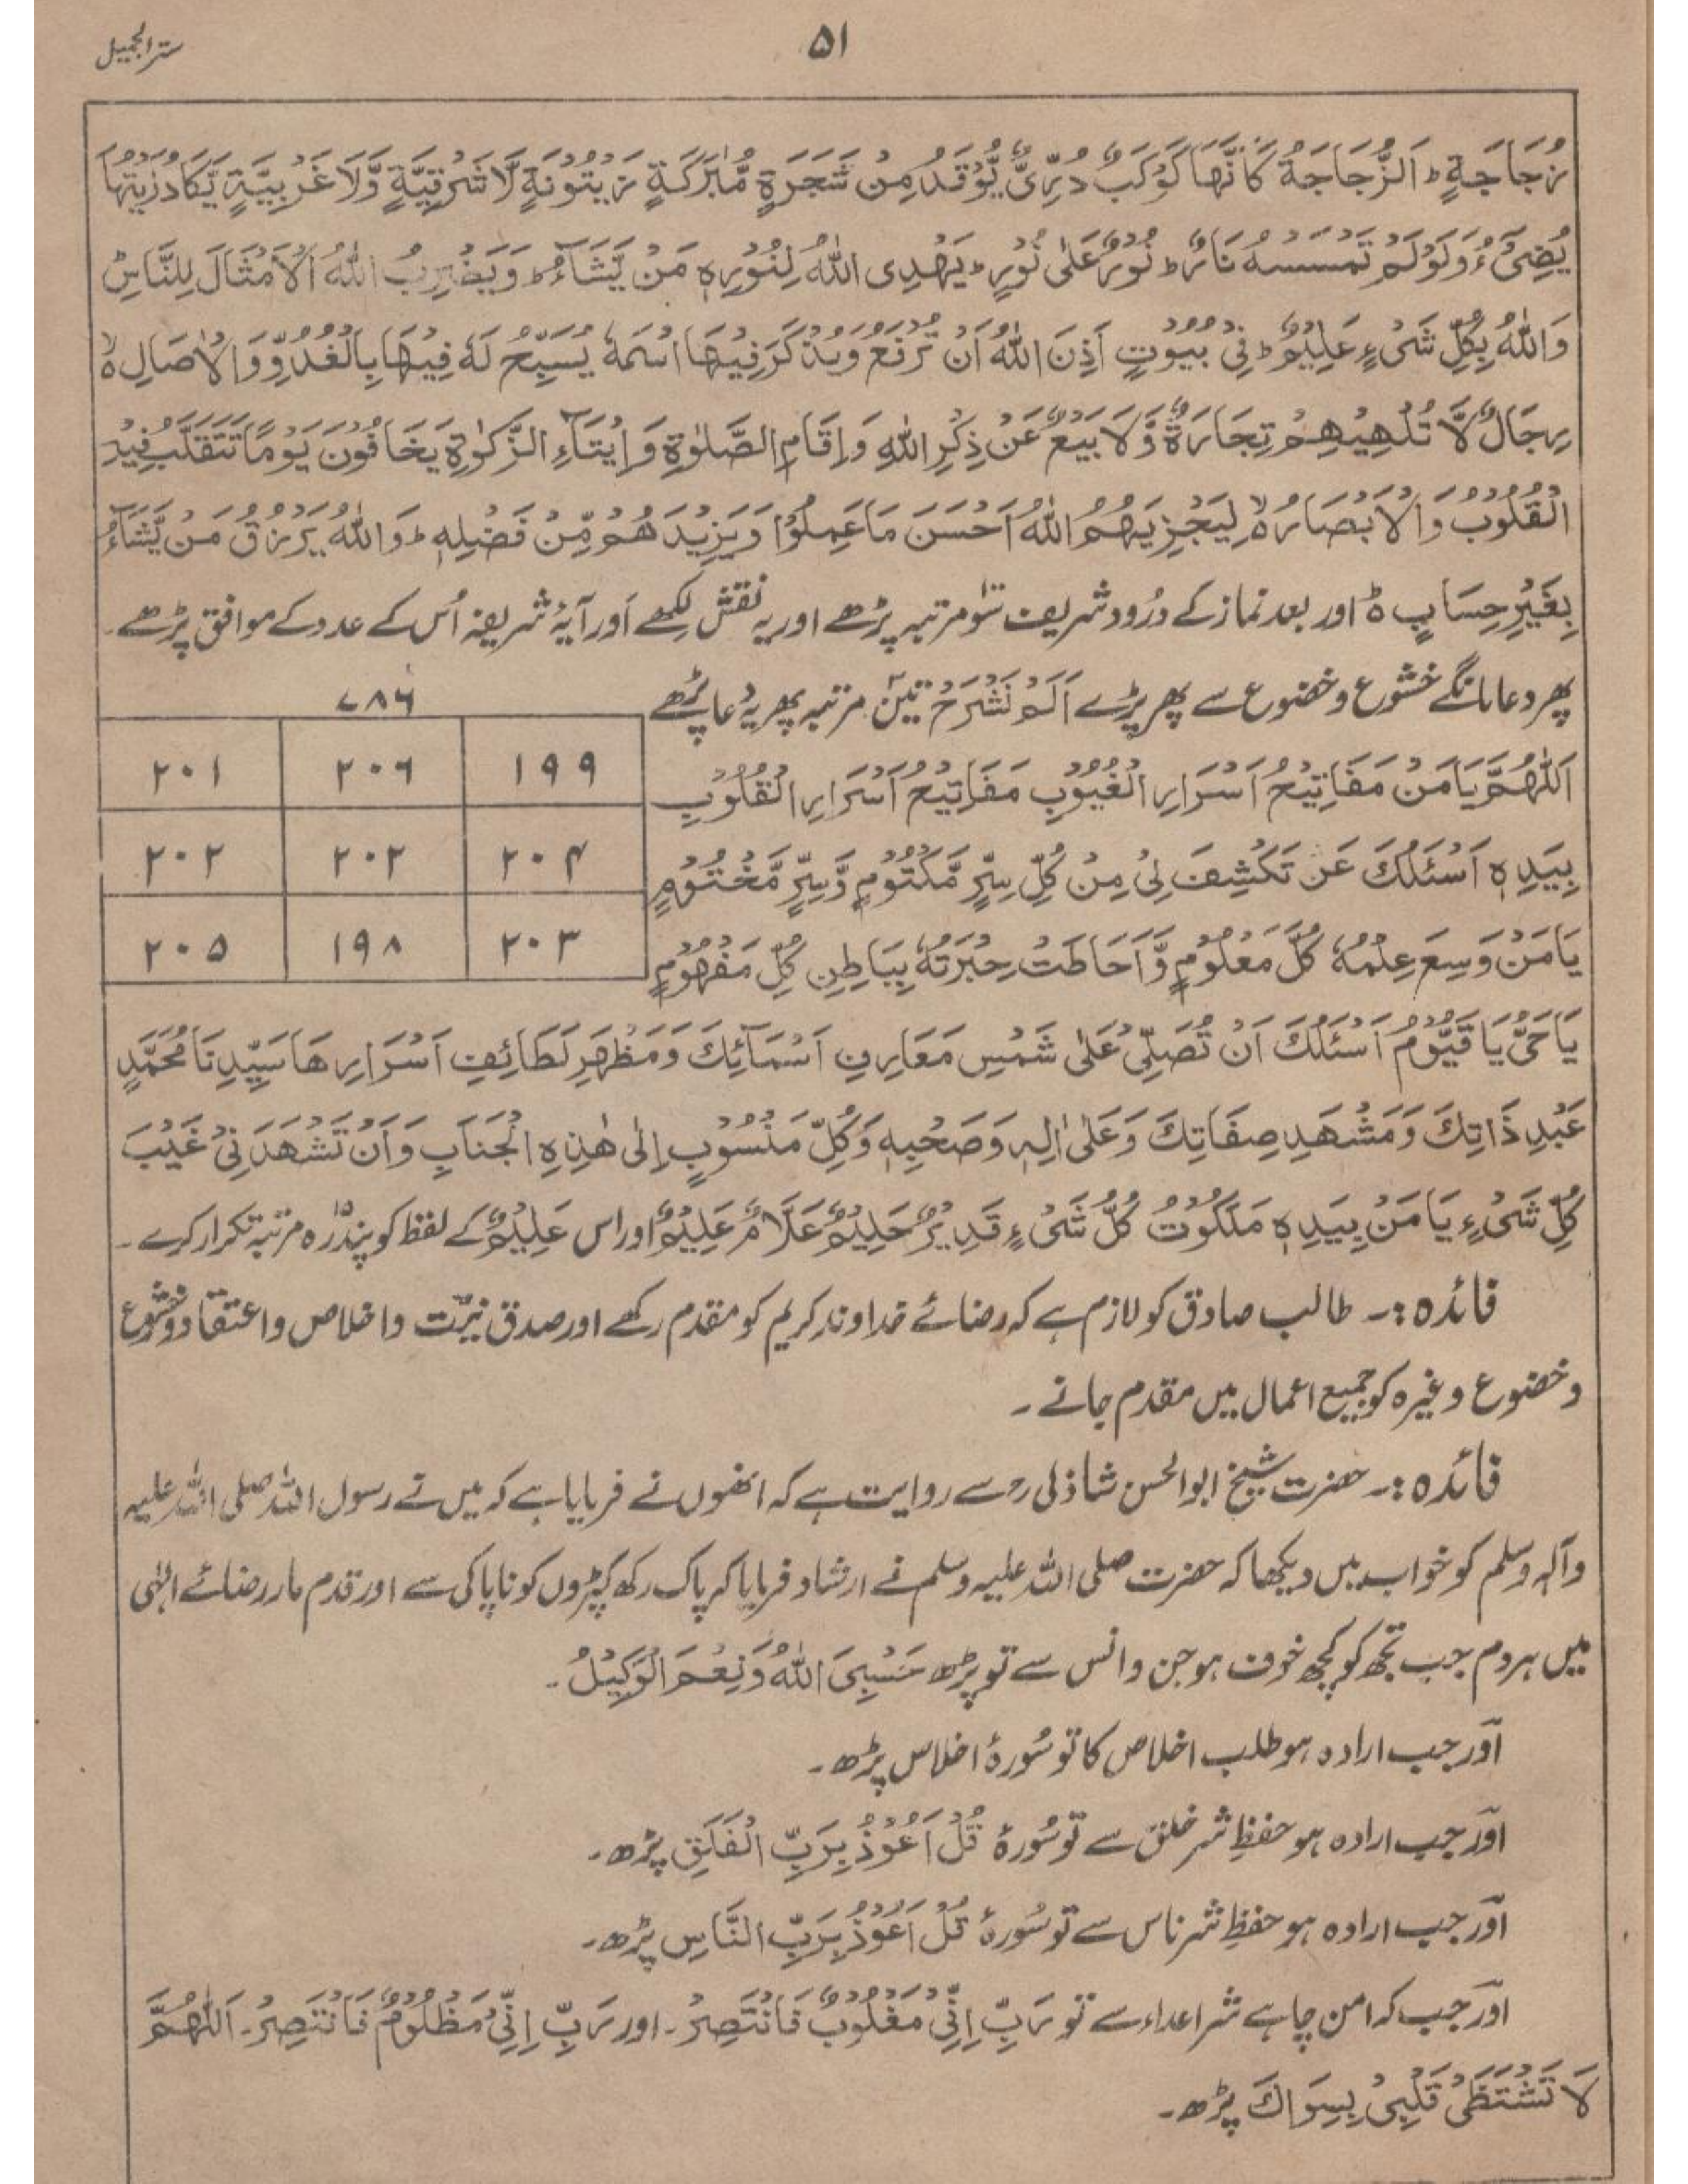 ۵۱
سترالجمیل
زُجَاجَةٍ ؕ اَلزُّجَاجَةُ كَاَنَّهَا كَوْكَبٌ دُرِّیٌّ یُّوْقَدُ مِنْ شَجَرَةٍ مُّبٰرَكَةٍ زَیْتُوْنَةٍ لَّا شَرْقِیَّةٍ وَّلَا غَرْبِیَّةٍ یَّكَادُ زَیْتُهَا
یُضِیْٓءُ وَلَوْ لَمْ تَمْسَسْهُ نَارٌ ؕ نُوْرٌ عَلٰی نُوْرٍ ؕ یَهْدِی اللّٰهُ لِنُوْرِهٖ مَنْ یَّشَآءُ ؕ وَیَضْرِبُ اللّٰهُ الْاَمْثَالَ لِلنَّاسِ ؕ
وَاللّٰهُ بِكُلِّ شَیْءٍ عَلِیْمٌ ؕ فِیْ بُیُوْتٍ اَذِنَ اللّٰهُ اَنْ تُرْفَعَ وَیُذْكَرَ فِیْهَا اسْمُهٗ یُسَبِّحُ لَهٗ فِیْهَا بِالْغُدُوِّ وَالْاٰصَالِ ۙ
رِجَالٌ لَّا تُلْهِیْهِمْ تِجَارَةٌ وَّلَا بَیْعٌ عَنْ ذِكْرِ اللّٰهِ وَاِقَامِ الصَّلٰوةِ وَاِیْتَآءِ الزَّكٰوةِ یَخَافُوْنَ یَوْمًا تَتَقَلَّبُ فِیْهِ
الْقُلُوْبُ وَالْاَبْصَارُ ۙ لِیَجْزِیَهُمُ اللّٰهُ اَحْسَنَ مَا عَمِلُوْا وَیَزِیْدَهُمْ مِّنْ فَضْلِهٖ ؕ وَاللّٰهُ یَرْزُقُ مَنْ یَّشَآءُ
بِغَیْرِ حِسَابٍ ۃ اور بعد نماز کے درُود شریف سَو مرتبہ پڑھے اور یہ نقش لکھے اَور آیۂ شریفہ اُس کے عدد کے موافق پڑھے۔
پھر دعا مانگے خشوع و خضوع سے پھر پڑے اَلَمْ نَشْرَحْ تین مرتبہ پھر یہ دُعا پڑھے
اَللّٰهُمَّ یَا مَنْ مَفَاتِیْحُ اَسْرَارِ الْغُیُوْبِ مَفَاتِیْحُ اَسْرَارِ الْقُلُوْبِ
بِیَدِهٖ اَسْئَلُكَ عَنْ تَكْشِفَ لِیْ مِنْ كُلِّ سِرٍّ مَّكْتُوْمٍ وَّسِرٍّ مَّخْتُوْمٍ
یَا مَنْ وَسِعَ عِلْمُهٗ كُلَّ مَعْلُوْمٍ وَّاَحَاطَتْ حِبْرَتُهٗ بِبَاطِنِ كُلِّ مَفْهُوْمٍ
۷۸۶
۱۹۹ ۲۰۶ ۲۰۱
۲۰۴ ۲۰۲ ۲۰۲
۲۰۳ ۱۹۸ ۲۰۵
یَا حَیُّ یَا قَیُّوْمُ اَسْئَلُكَ اَنْ تُصَلِّیَ عَلٰی شَمْسِ مَعَارِفِ اَسْمَآئِكَ وَمَظْهَرِ لَطَائِفِ اَسْرَارِهَا سَیِّدِنَا مُحَمَّدٍ
عَبْدِ ذَاتِكَ وَمَشْهَدِ صِفَاتِكَ وَعَلٰی اٰلِهٖ وَصَحْبِهٖ وَكُلِّ مَنْسُوْبٍ اِلٰی هٰذِهِ الْجَنَابِ وَاَنْ تَشْهَدَنِیْ غَیْبَ
كُلِّ شَیْءٍ یَا مَنْ بِیَدِهٖ مَلَكُوْتُ كُلُّ شَیْءٍ قَدِیْرٌ حَلِیْمٌ عَلَّامٌ عَلِیْمٌ اور اس عَلِیْمٌ کے لفظ کو پندرہ مرتبہ تکرار کرے۔
فائدہ :۔ طالب صادق کو لازم ہے کہ رضائے خداوند کریم کو مقدم رکھے اور صدق نیّت و اخلاص و اعتقاد و خشوع
و خضوع وغیرہ کو جمیع اعمال میں مقدم جانے۔
فائدہ :۔ حضرت شیخ ابوالحسن شاذلی رح سے روایت ہے کہ انھوں نے فرمایا ہے کہ میں نے رسول اللہ صلی اللہ علیہ
وآلہ وسلم کو خواب میں دیکھا کہ حضرت صلی اللہ علیہ وسلم نے ارشاد فرمایا کہ پاک رکھ کپڑوں کو ناپاکی سے اور قدم مار رضائے الٰہی
میں ہر دم جب تجھ کو کچھ خوف ہو جن و انس سے تو پڑھ حَسْبِیَ اللّٰهُ وَنِعْمَ الْوَكِیْلُ۔
اَور جب ارادہ ہو طلب اخلاص کا تو سُورۂ اخلاس پڑھ۔
اَور جب ارادہ ہو حفظِ شر خلق سے تو سُورۂ قُلْ اَعُوْذُ بِرَبِّ الْفَلَقِ پڑھ۔
اَور جب ارادہ ہو حفظِ شر ناس سے تو سُورۂ قُلْ اَعُوْذُ بِرَبِّ النَّاسِ پڑھ۔
اَور جب کہ امن چاہے شر اعداء سے تو رَبِّ اِنِّیْ مَغْلُوْبٌ فَانْتَصِرْ۔ اور رَبِّ اِنِّیْ مَظْلُوْمٌ فَانْتَصِرْ۔ اَللّٰهُمَّ
لَا تَشْتَظْیْ قَلْبِیْ بِسِوَاكَ پڑھ۔